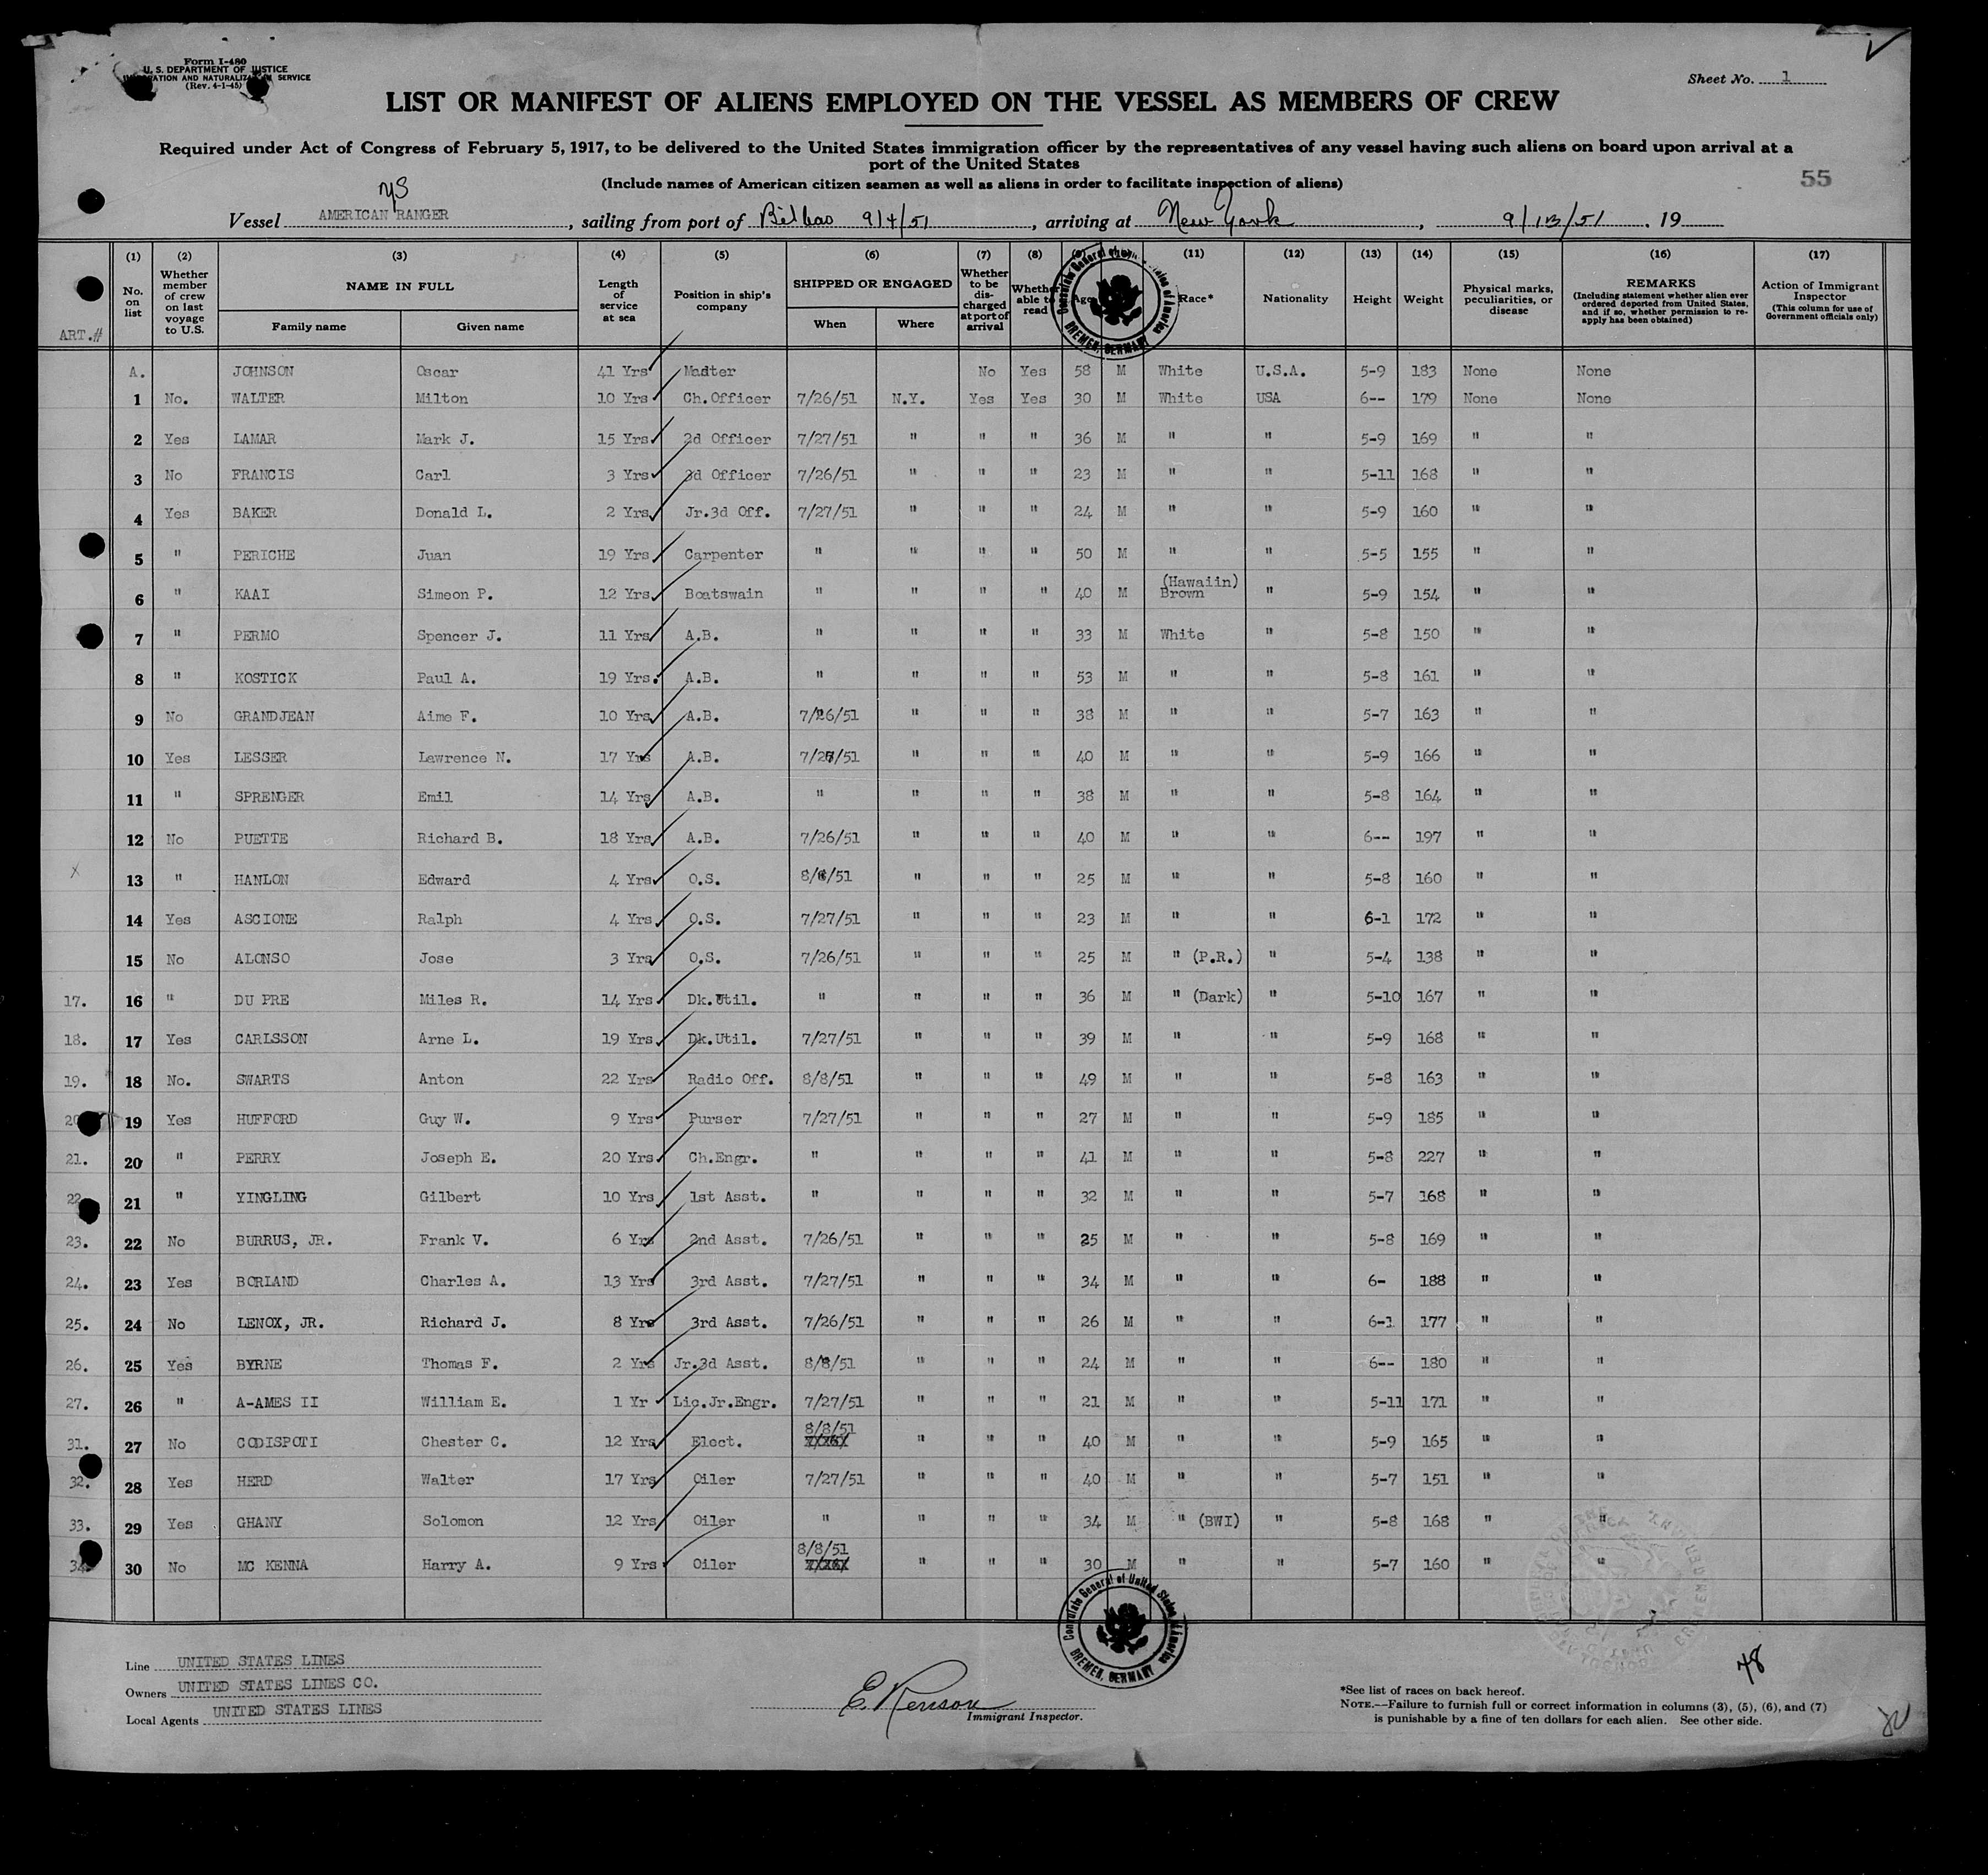 Form I-480
U. S. DEPARTMENT OF JUSTICE
IMMIGRATION AND NATURALIZATION SERVICE
(Rev. 4-1-45)
Sheet No. 1
LIST OR MANIFEST OF ALIENS EMPLOYED ON THE VESSEL AS MEMBERS OF CREW
Required under Act of Congress of February 5, 1917, to be delivered to the United States immigration officer by the representatives of any vessel having such aliens on board upon arrival at a
port of the United States
(Include names of American citizen seamen as well as aliens in order to facilitate inspection of aliens)
55
Vessel AMERICAN RANGER, sailing from port of Bilbao 9/4/51, arriving at New York, 9/13/51, 19
(1) (2) (3) (4) (5) (6) (7) (8) (11) (12) (13) (14) (15) (16) (17)
ART.# No. on list Whether member of crew on last voyage to U.S. NAME IN FULL Family name Given name Length of service at sea Position in ship's company SHIPPED OR ENGAGED When Where Whether to be discharged at port of arrival Whether able to read Age Race* Nationality Height Weight Physical marks, peculiarities, or disease REMARKS (Including statement whether alien ever ordered deported from United States, and if so, whether permission to reapply has been obtained) Action of Immigrant Inspector (This column for use of Government officials only)
Consulate General of United States of America BREMEN, GERMANY
A. JOHNSON Oscar 41 Yrs Master No Yes 58 M White U.S.A. 5-9 183 None None
1 No. WALTER Milton 10 Yrs Ch.Officer 7/26/51 N.Y. Yes Yes 30 M White USA 6-- 179 None None
2 Yes LAMAR Mark J. 15 Yrs 2d Officer 7/27/51 " " " 36 M " " 5-9 169 " "
3 No FRANCIS Carl 3 Yrs 3d Officer 7/26/51 " " " 23 M " " 5-11 168 " "
4 Yes BAKER Donald L. 2 Yrs Jr.3d Off. 7/27/51 " " " 24 M " " 5-9 160 " "
5 " PERICHE Juan 19 Yrs Carpenter " " " " 50 M " " 5-5 155 " "
6 " KAAI Simeon P. 12 Yrs Boatswain " " " " 40 M (Hawaiin) Brown " 5-9 154 " "
7 " PERMO Spencer J. 11 Yrs A.B. " " " " 33 M White " 5-8 150 " "
8 " KOSTICK Paul A. 19 Yrs. A.B. " " " " 53 M " " 5-8 161 " "
9 No GRANDJEAN Aime F. 10 Yrs A.B. 7/26/51 " " " 38 M " " 5-7 163 " "
10 Yes LESSER Lawrence N. 17 Yrs A.B. 7/27/51 " " " 40 M " " 5-9 166 " "
11 " SPRENGER Emil 14 Yrs A.B. " " " " 38 M " " 5-8 164 " "
12 No PUETTE Richard B. 18 Yrs A.B. 7/26/51 " " " 40 M " " 6-- 197 " "
X 13 " HANLON Edward 4 Yrs O.S. 8/8/51 " " " 25 M " " 5-8 160 " "
14 Yes ASCIONE Ralph 4 Yrs O.S. 7/27/51 " " " 23 M " " 6-1 172 " "
15 No ALONSO Jose 3 Yrs O.S. 7/26/51 " " " 25 M " (P.R.) " 5-4 138 " "
17. 16 " DU PRE Miles R. 14 Yrs Dk.Util. " " " " 36 M " (Dark) " 5-10 167 " "
18. 17 Yes CARLSSON Arne L. 19 Yrs Dk.Util. 7/27/51 " " " 39 M " " 5-9 168 " "
19. 18 No. SWARTS Anton 22 Yrs Radio Off. 8/8/51 " " " 49 M " " 5-8 163 " "
20 19 Yes HUFFORD Guy W. 9 Yrs Purser 7/27/51 " " " 27 M " " 5-9 185 " "
21. 20 " PERRY Joseph E. 20 Yrs Ch.Engr. " " " " 41 M " " 5-8 227 " "
22 21 " YINGLING Gilbert 10 Yrs 1st Asst. " " " " 32 M " " 5-7 168 " "
23. 22 No BURRUS, JR. Frank V. 6 Yrs 2nd Asst. 7/26/51 " " " 25 M " " 5-8 169 " "
24. 23 Yes BORLAND Charles A. 13 Yrs 3rd Asst. 7/27/51 " " " 34 M " " 6- 188 " "
25. 24 No LENOX, JR. Richard J. 8 Yrs 3rd Asst. 7/26/51 " " " 26 M " " 6-1 177 " "
26. 25 Yes BYRNE Thomas F. 2 Yrs Jr.3d Asst. 8/8/51 " " " 24 M " " 6-- 180 " "
27. 26 " A-AMES II William E. 1 Yr Lic.Jr.Engr. 7/27/51 " " " 21 M " " 5-11 171 " "
31. 27 No CODISPOTI Chester C. 12 Yrs Elect. 8/8/51 " " " 40 M " " 5-9 165 " "
32. 28 Yes HERD Walter 17 Yrs Oiler 7/27/51 " " " 40 M " " 5-7 151 " "
33. 29 Yes GHANY Solomon 12 Yrs Oiler " " " " 34 M " (BWI) " 5-8 168 " "
34 30 No MC KENNA Harry A. 9 Yrs Oiler 8/8/51 " " " 30 M " " 5-7 160 " "
Consulate General of United States of America BREMEN, GERMANY
Line UNITED STATES LINES
Owners UNITED STATES LINES CO.
Local Agents UNITED STATES LINES
E. Renson
Immigrant Inspector.
48
*See list of races on back hereof.
NOTE.—Failure to furnish full or correct information in columns (3), (5), (6), and (7)
is punishable by a fine of ten dollars for each alien. See other side.